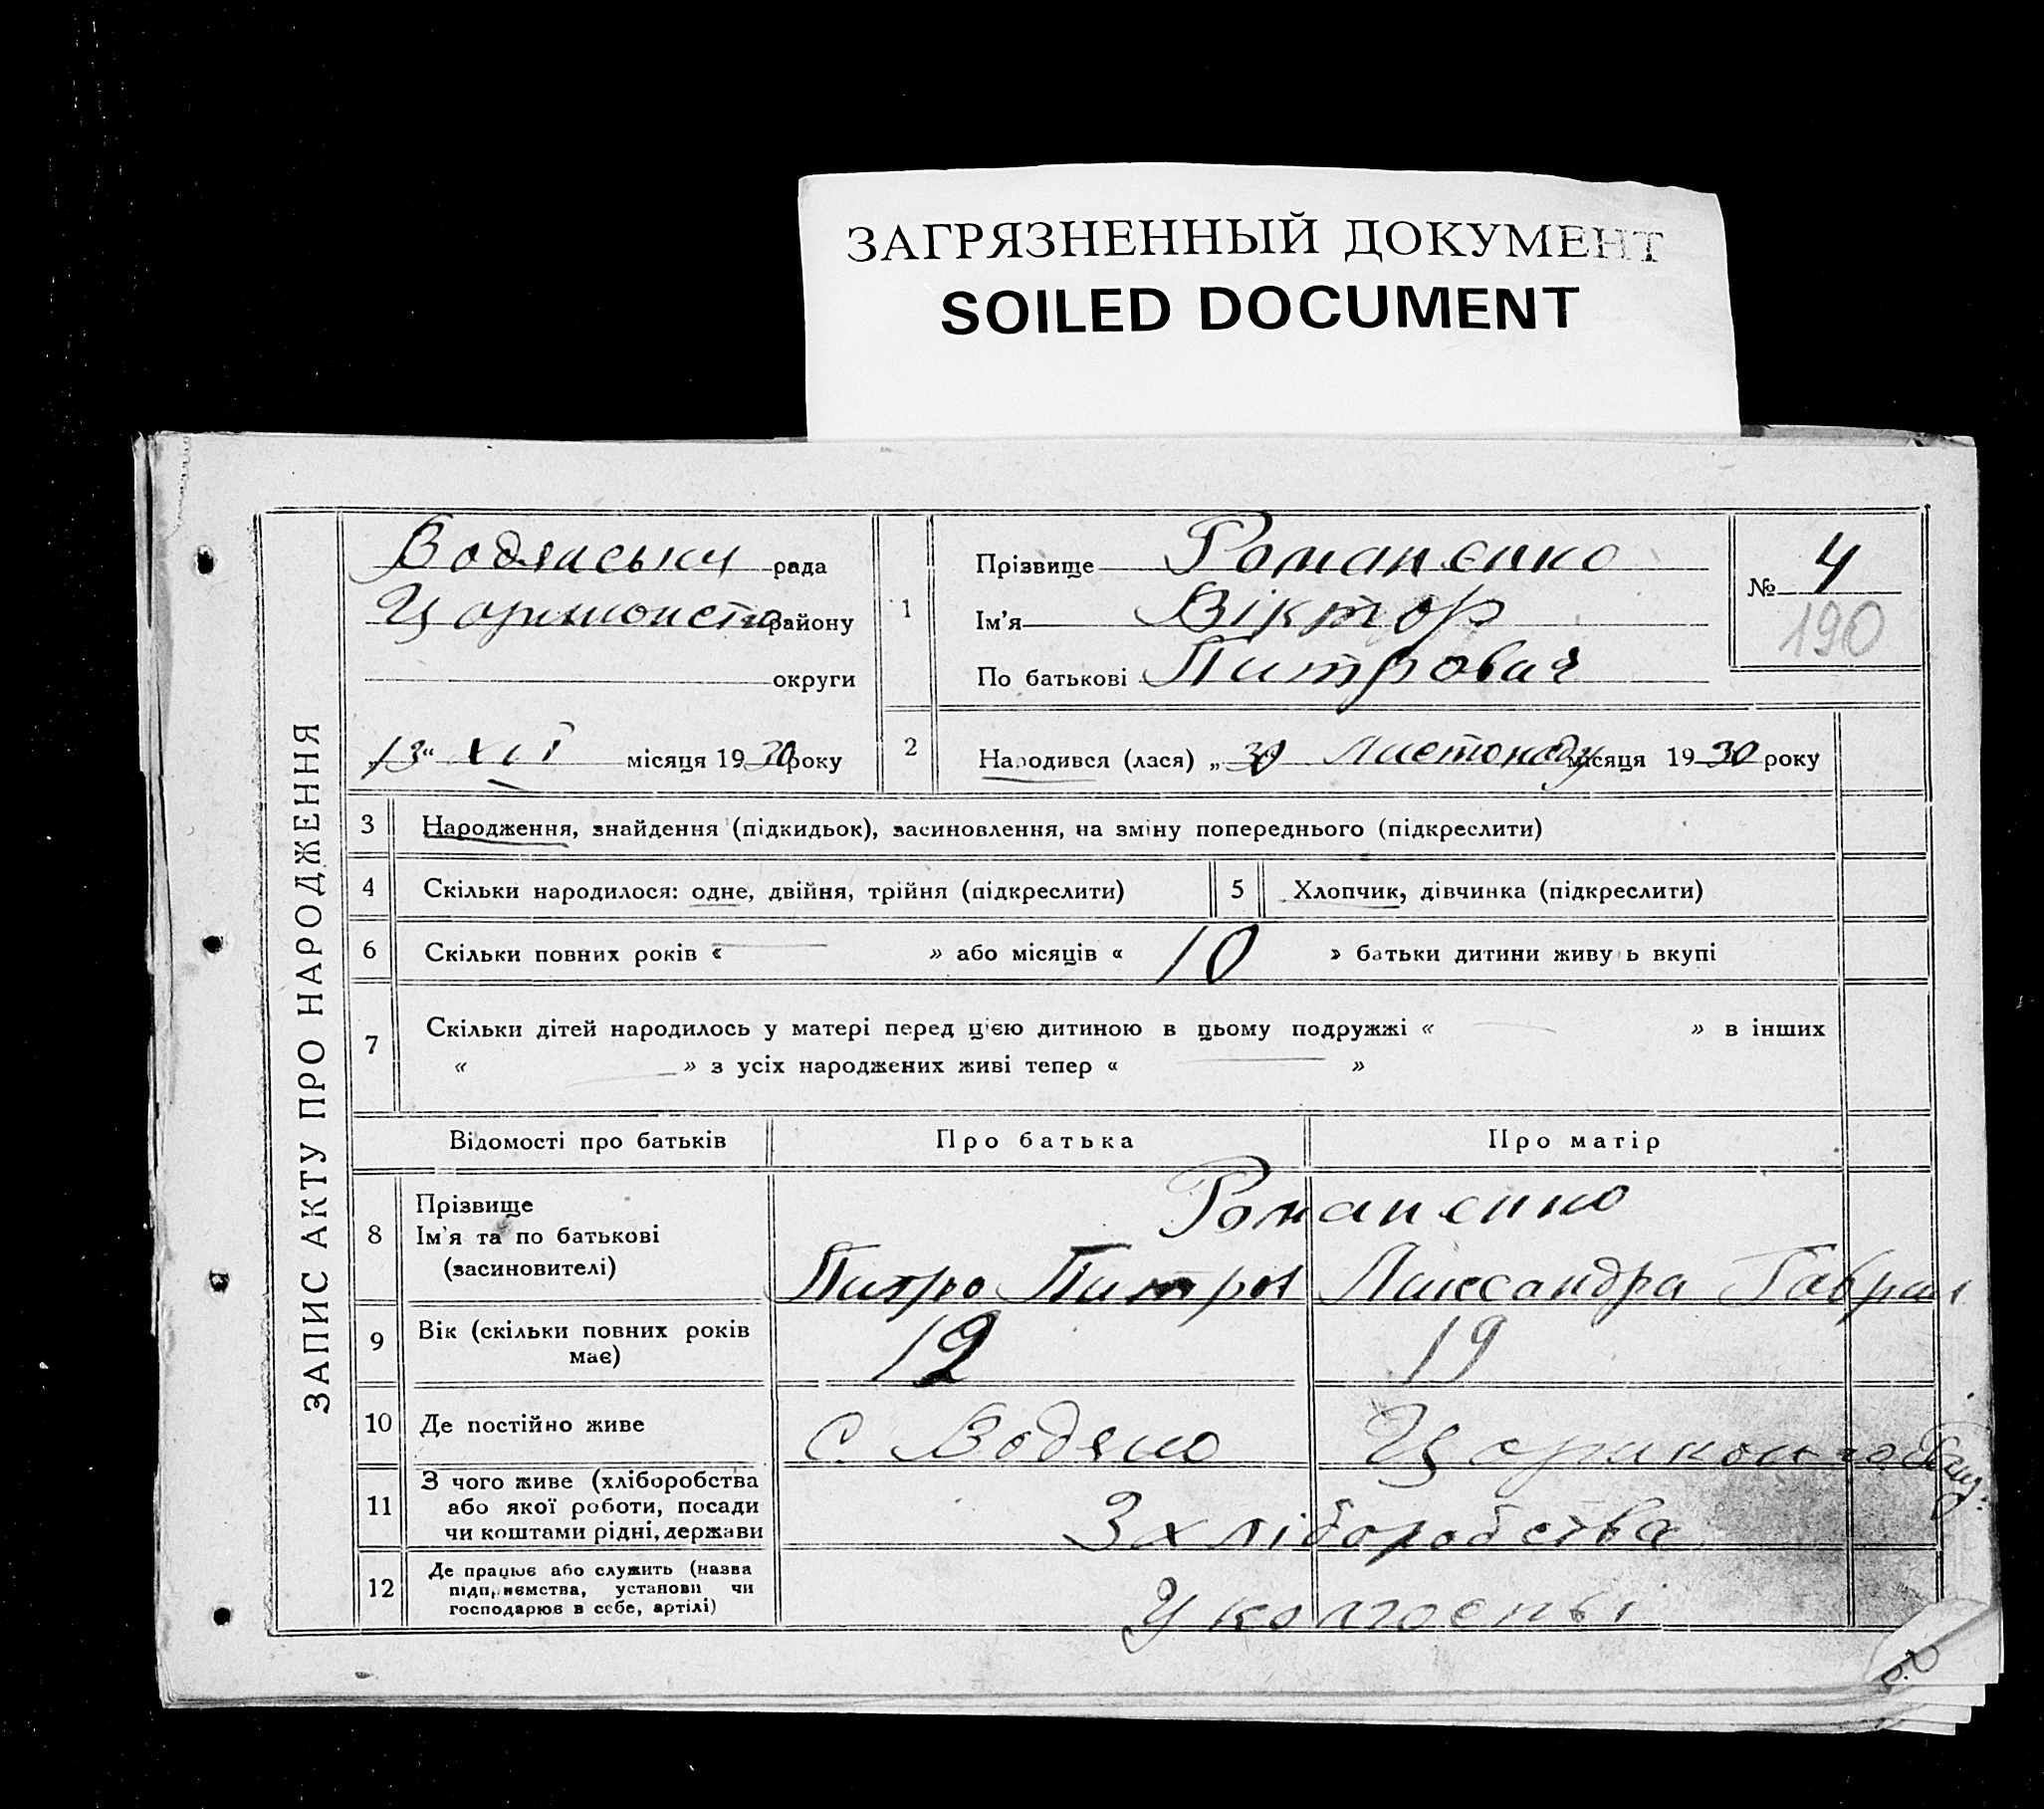 ЗАГРЯЗНЕННЫЙ ДОКУМЕНТ
SOILED DOCUMENT
ЗАПИС АКТУ ПРО НАРОДЖЕННЯ
Водяськи рада
району
округи
„13“ XII місяця 1930 року
1
Прізвище Романенко
Ім'я Віктор
По батькові Питрович
№ 4
190
2
Народився (лася) „30 Листопаду місяця 1930 року
3 Народження, знайдення (підкидьок), засиновлення, на зміну попереднього (підкреслити)
4 Скільки народилося: одне, двійня, трійня (підкреслити) 5 Хлопчик, дівчинка (підкреслити)
6 Скільки повних років « — » або місяців « 10 » батьки дитини живу ь вкупі
7 Скільки дітей народилось у матері перед цією дитиною в цьому подружжі « — » в інших
« — » з усіх народжених живі тепер « — »
Відомості про батьків Про батька Про матір
8 Прізвище Романенко
Ім'я та по батькові
(засиновителі) Питро Питров Ликсандра Гаврил
9 Вік (скільки повних років має) 19
10 Де постійно живе с. Водяно
11 З чого живе (хліборобства
або якої роботи, посади
чи коштами рідні, держави З хліборобства
12 Де працює або служить (назва
підприємства, установи чи
господарює в себе, артілі) У колгоспі